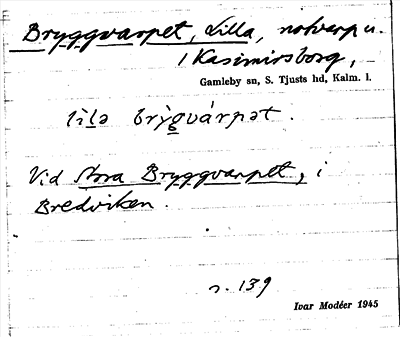 Bryggvarpet, Lilla, notvarp u.
/ Kasimirsborg,
Gamleby sn, S. Tjusts hd, Kalm. l.
lìla brỳgvárpət.
Vid Stora Bryggvarpet, i
Bredviken.
s. 139
Ivar Modéer 1945